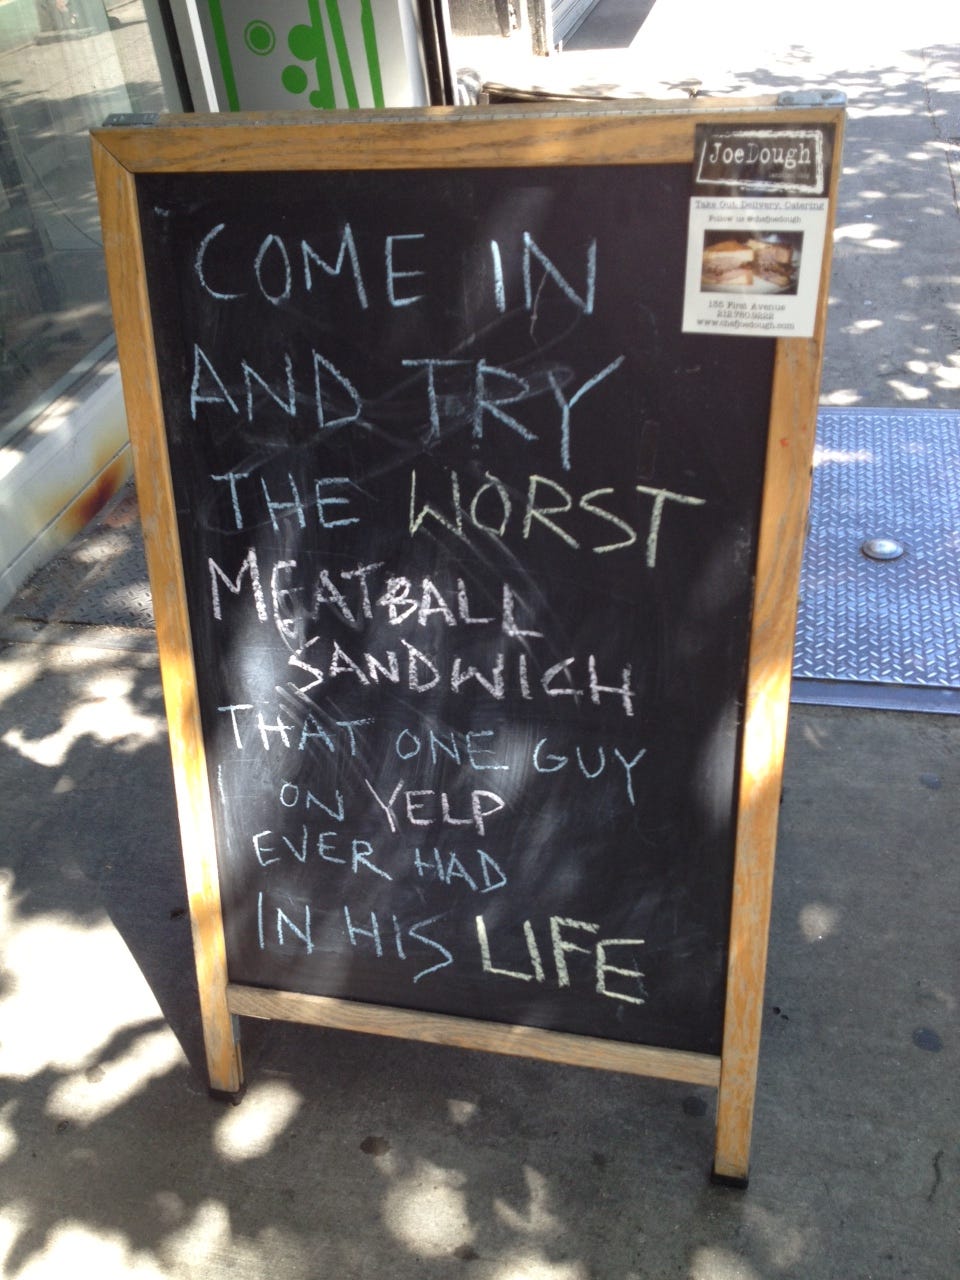 COME IN
AND TRY
THE WORST
MEATBALL
SANDWICH
THAT ONE GUY
ON YELP
EVER HAD
IN HIS LIFE
JoeDough
Take Out, Delivery, Catering
Follow us @chefjoedough
135 First Avenue
212.780.9222
www.chefjoedough.com